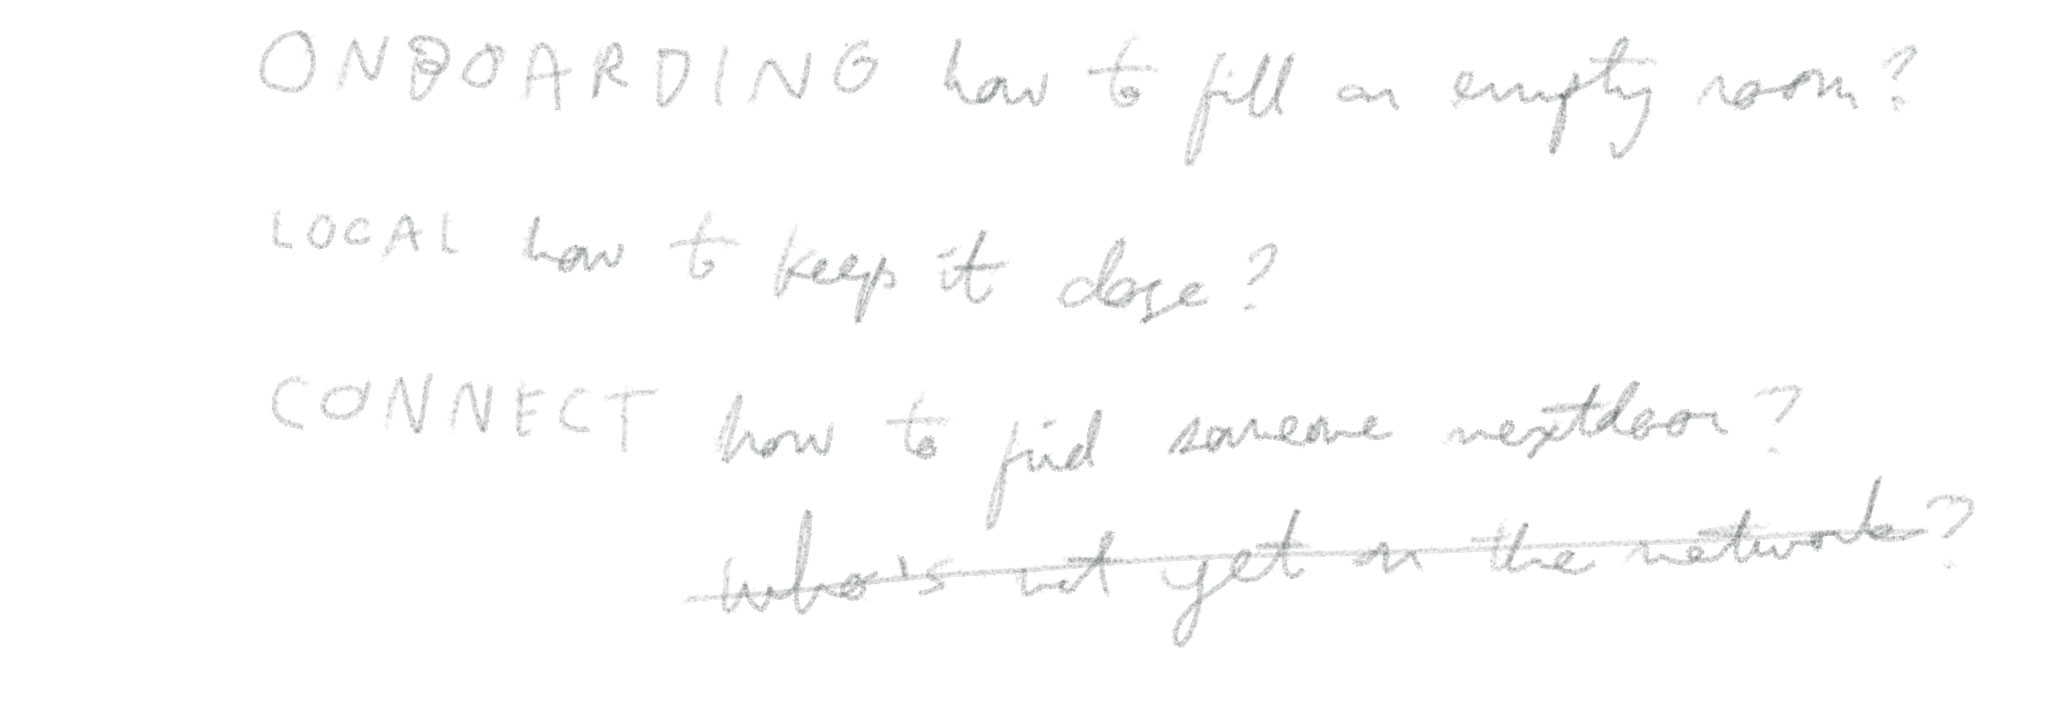 ONBOARDING how to fill an empty room?
LOCAL how to keep it close?
CONNECT how to find someone nextdoor?
who's not yet on the network?